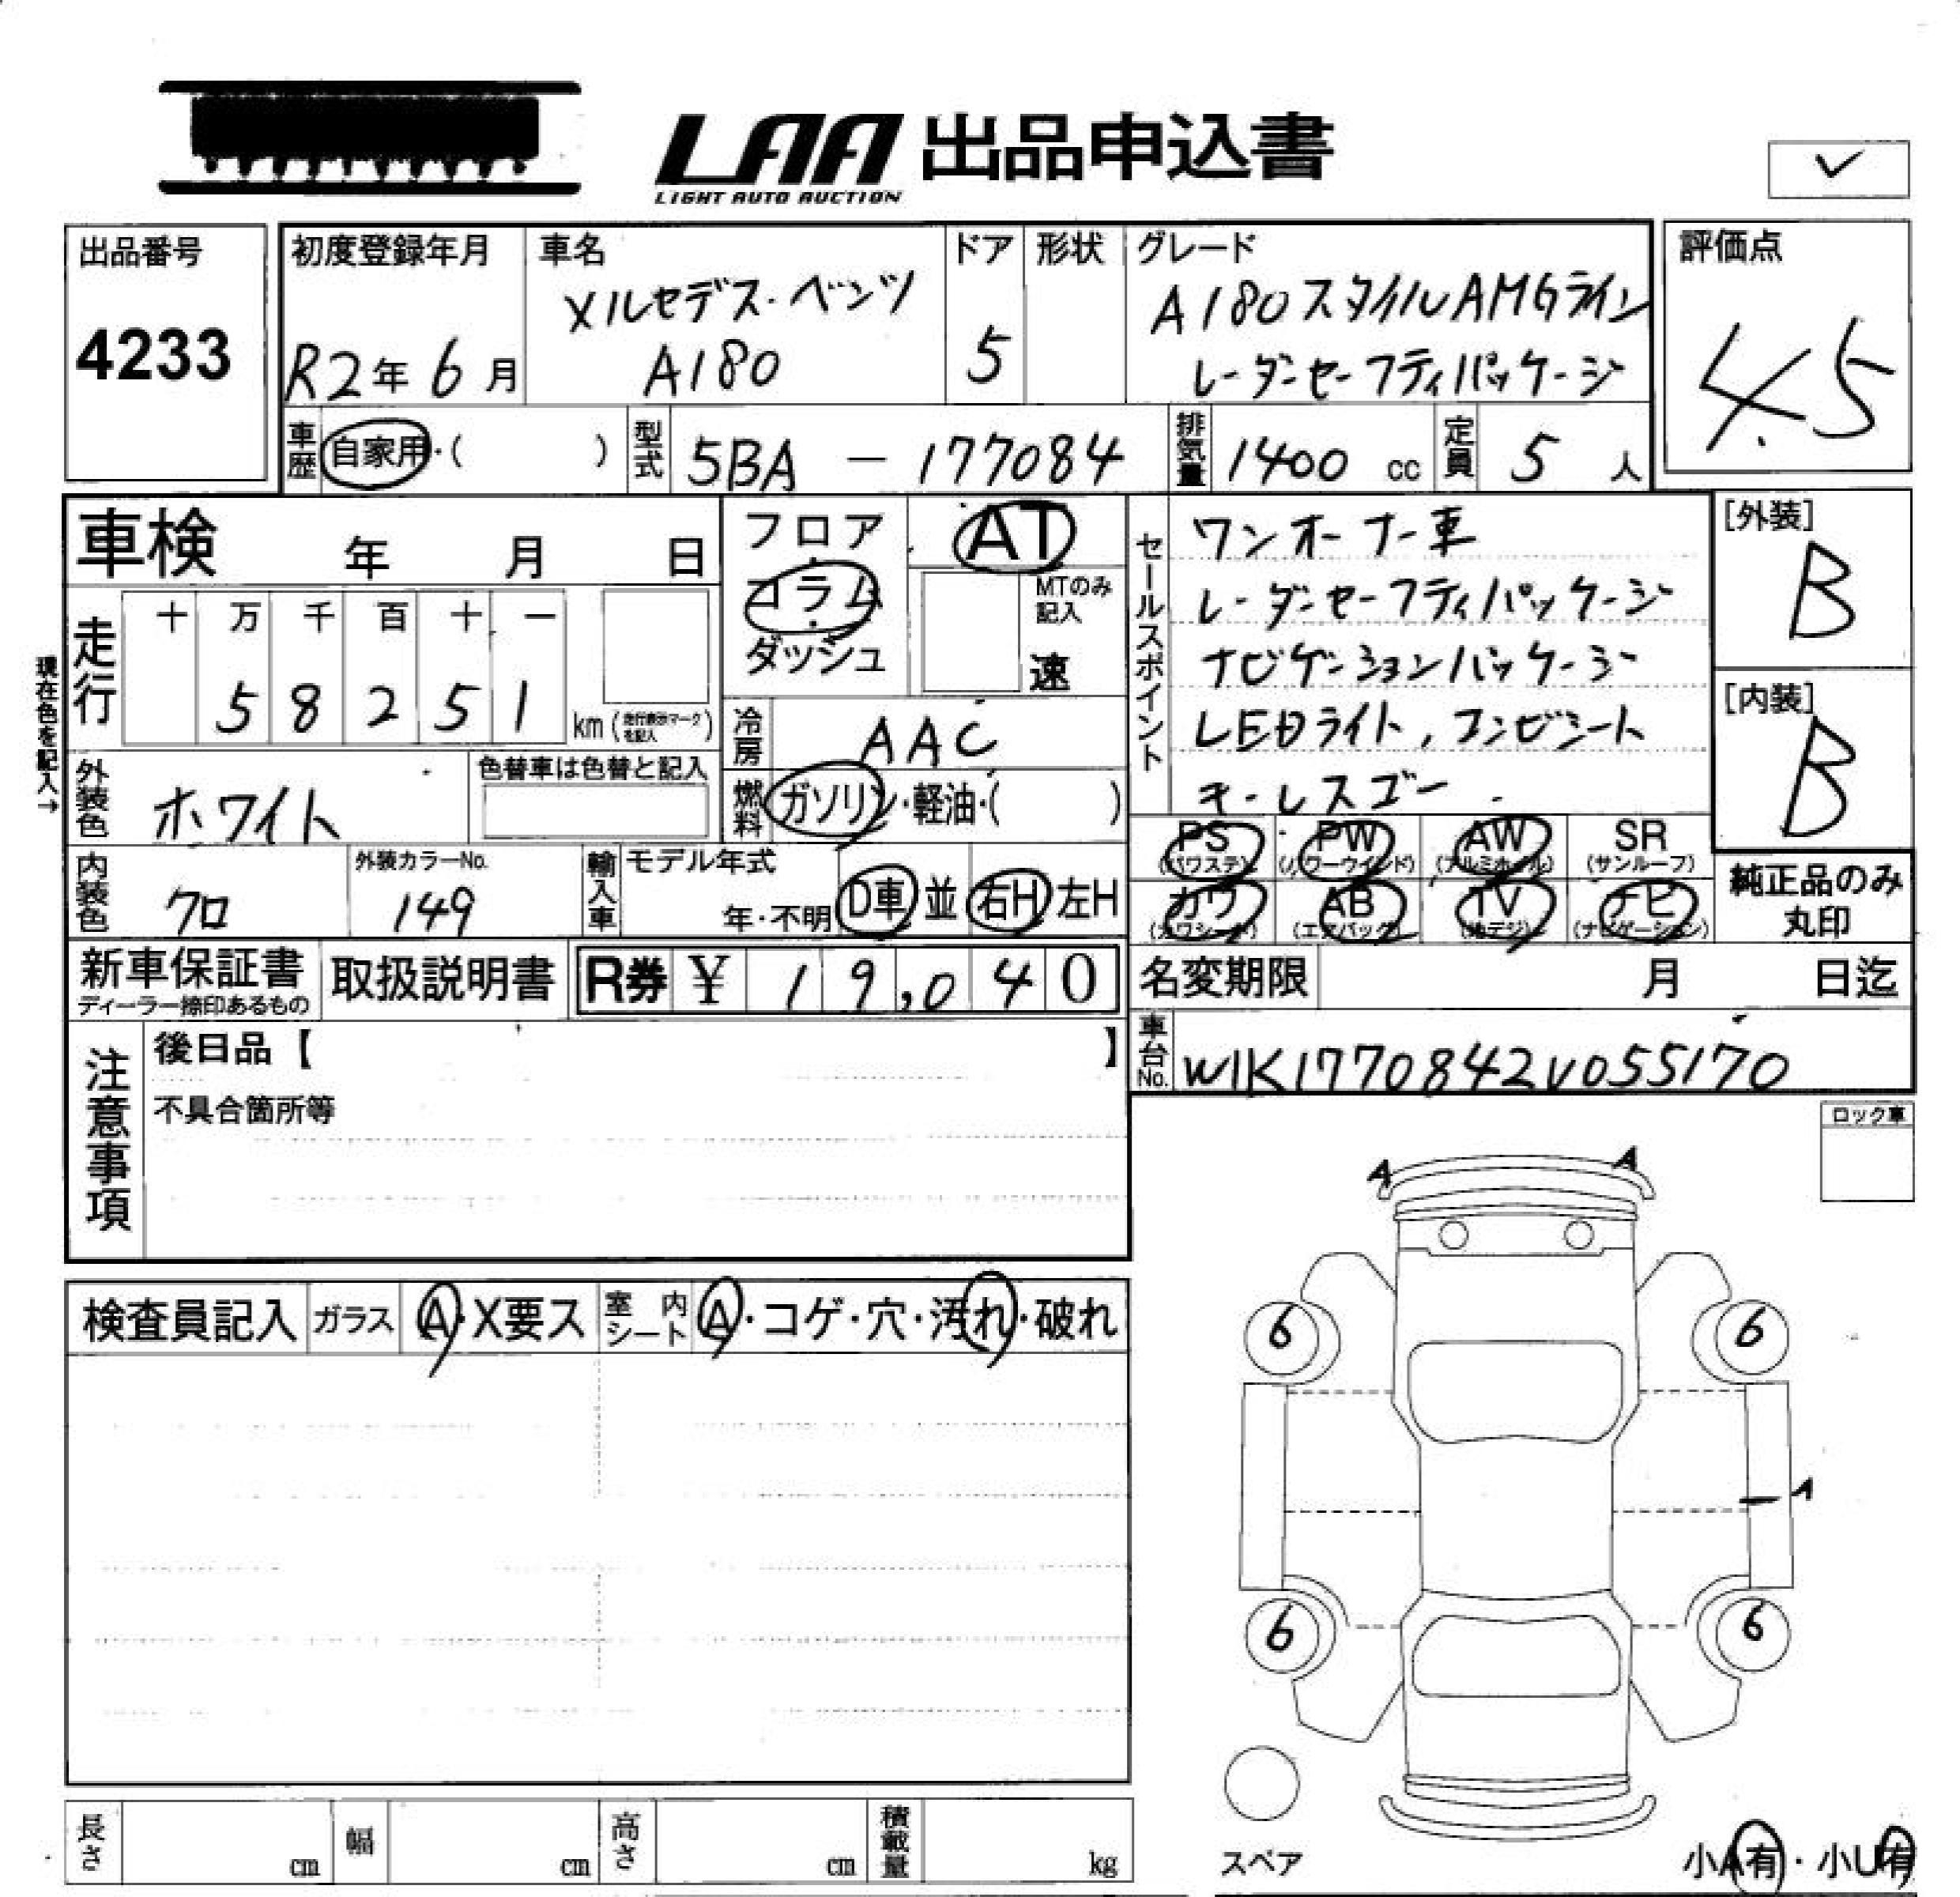 LAA 出品申込書
LIGHT AUTO AUCTION
✓
出品番号
4233
初度登録年月
R2年6月
車名
メルセデス・ベンツ
A180
ドア
5
形状
グレード
A180スタイルAMGライン
レーダーセーフティパッケージ
評価点
4.5
車歴
自家用・( )
型式
5BA - 177084
排気量
1400 cc
定員
5 人
車検 年 月 日
フロア・コラム・ダッシュ
AT
MTのみ記入
速
走行
十 万 千 百 十 一
5 8 2 5 1
km (走行表示マークを記入)
現在色を記入→
冷房
AAC
燃料
ガソリン・軽油・( )
外装色
ホワイト
色替車は色替と記入
内装色
クロ
外装カラーNo.
149
輸入車
モデル年式
年・不明
D車 並
右H 左H
セールスポイント
ワンオーナー車
レーダーセーフティパッケージ
ナビゲーションパッケージ
LEDライト, コンビシート
キーレスゴー
[外装]
B
[内装]
B
PS
(パワステ)
PW
(パワーウインド)
AW
(アルミホイル)
SR
(サンルーフ)
カワ
(カワシート)
AB
(エアバック)
TV
(地デジ)
ナビ
(ナビゲーション)
純正品のみ
丸印
新車保証書
ディーラー捺印あるもの
取扱説明書
R券 ¥ 19,040
名変期限 月 日迄
車台No.
W1K1770842V055170
注意事項
後日品【 】
不具合箇所等
ロック車
A A
6 6
A
6 6
検査員記入
ガラス
A・X要ス
室内シート
A・コゲ・穴・汚れ・破れ
長さ cm
幅 cm
高さ cm
積載量 kg
スペア
小A有・小U有